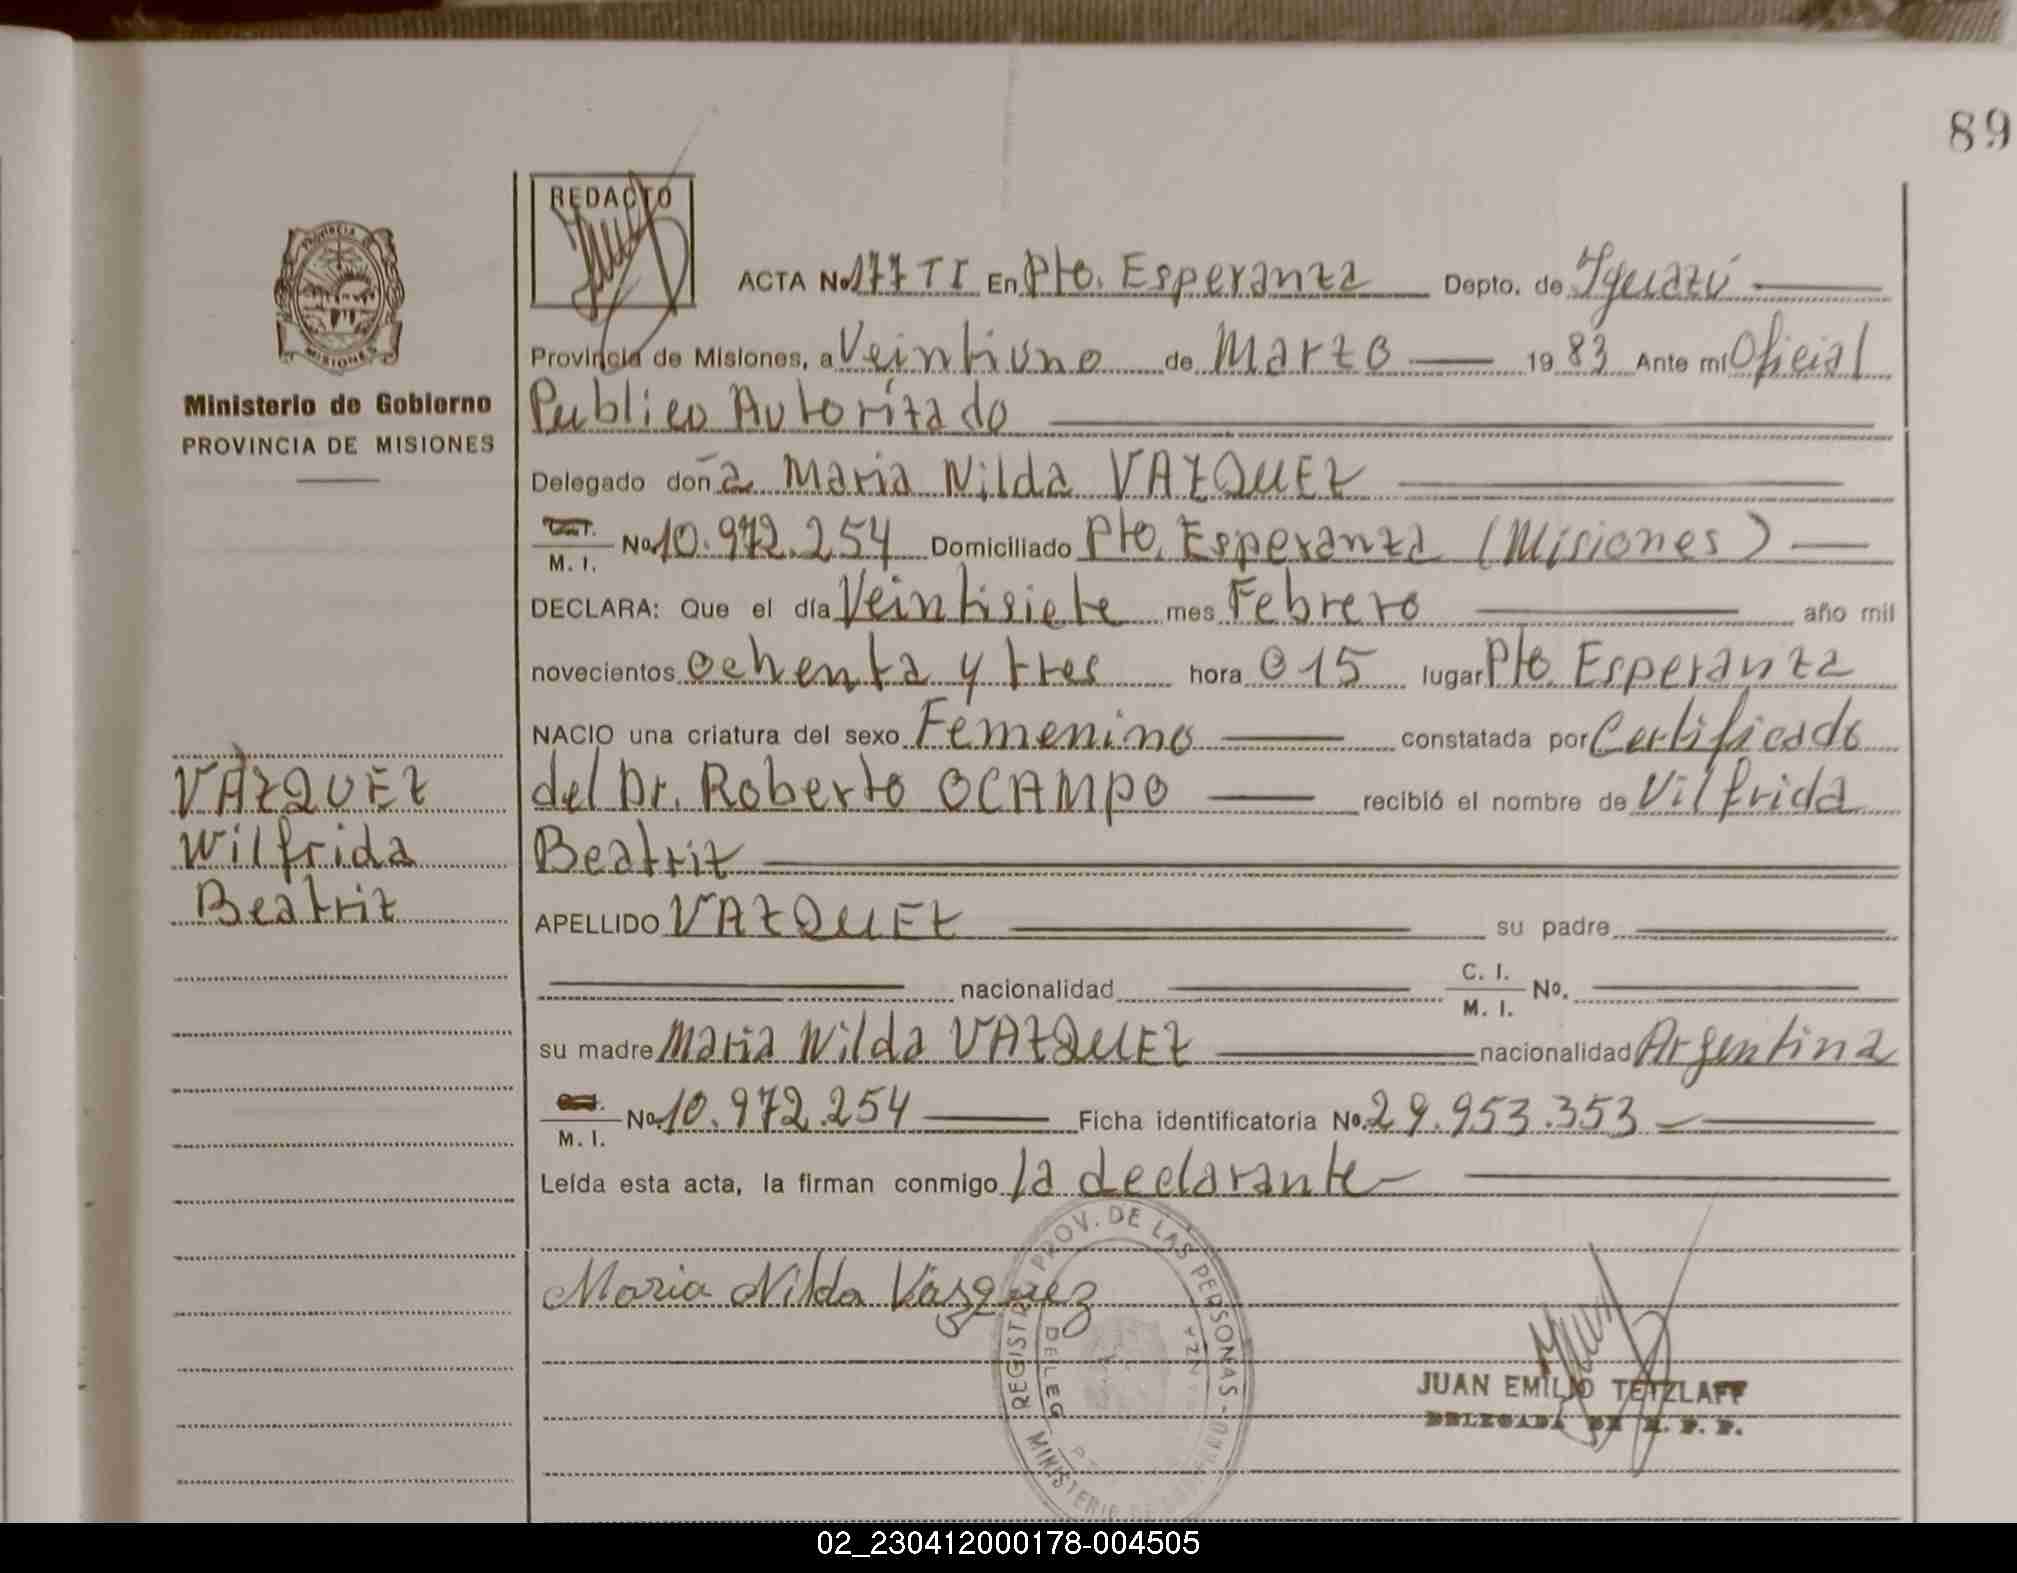 89
REDACTO
ACTA No. 177 TI En Pto. Esperanza Depto. de Iguazú
Provincia de Misiones, a Veintiuno de Marzo 1983 Ante mí Oficial
Publico Autorizado
Delegado doña Maria Nilda VAZQUEZ
M. I. No. 10.972.254 Domiciliado Pto. Esperanza (Misiones)
DECLARA: Que el día Veintisiete mes Febrero año mil
novecientos ochenta y tres hora 0 15 lugar Pto. Esperanza
NACIO una criatura del sexo Femenino constatada por Certificado
del Dr. Roberto OCAMPO recibió el nombre de Vilfrida
Beatriz
APELLIDO VAZQUEZ su padre
nacionalidad C. I. M. I. No.
su madre Maria Nilda VAZQUEZ nacionalidad Argentina
M. I. No. 10.972.254 Ficha identificatoria No. 29.953.353
Leída esta acta, la firman conmigo la declarante
PROVINCIA DE
MISIONES
Ministerio de Gobierno
PROVINCIA DE MISIONES
VAZQUEZ
Wilfrida
Beatriz
Maria Nilda Vazquez
REGISTRO PROV. DE LAS PERSONAS -
DELEG
MINISTERIO DE
JUAN EMILIO TETZLAFF
DELEGADA DE R. P. P.
02_230412000178-004505